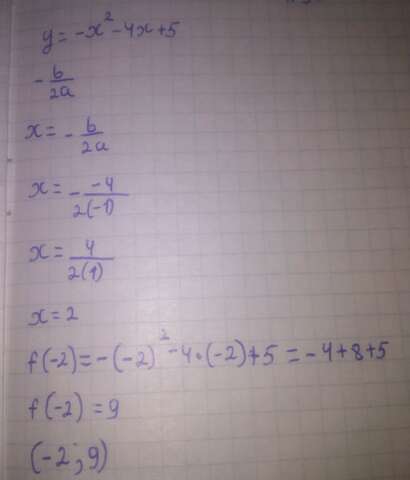 y = -x² - 4x + 5
- b/2a
x = - b/2a
x = - -4/2(-1)
x = 4/2(1)
x = 2
f(-2) = -(-2)² - 4·(-2) + 5 = -4 + 8 + 5
f(-2) = 9
(-2; 9)